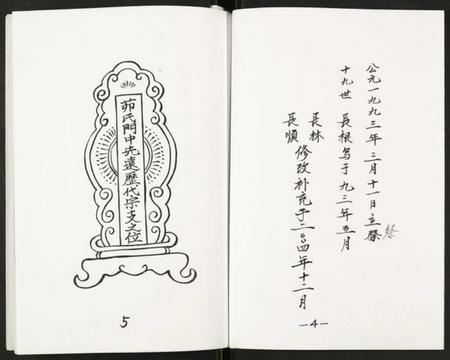 公元一九九三年三月十一日立
十九世 長根写于九三年五月
長林
長順 修改补充于二〇〇四年十二月
—4—
茆民門中先遠歷代宗支之位
5